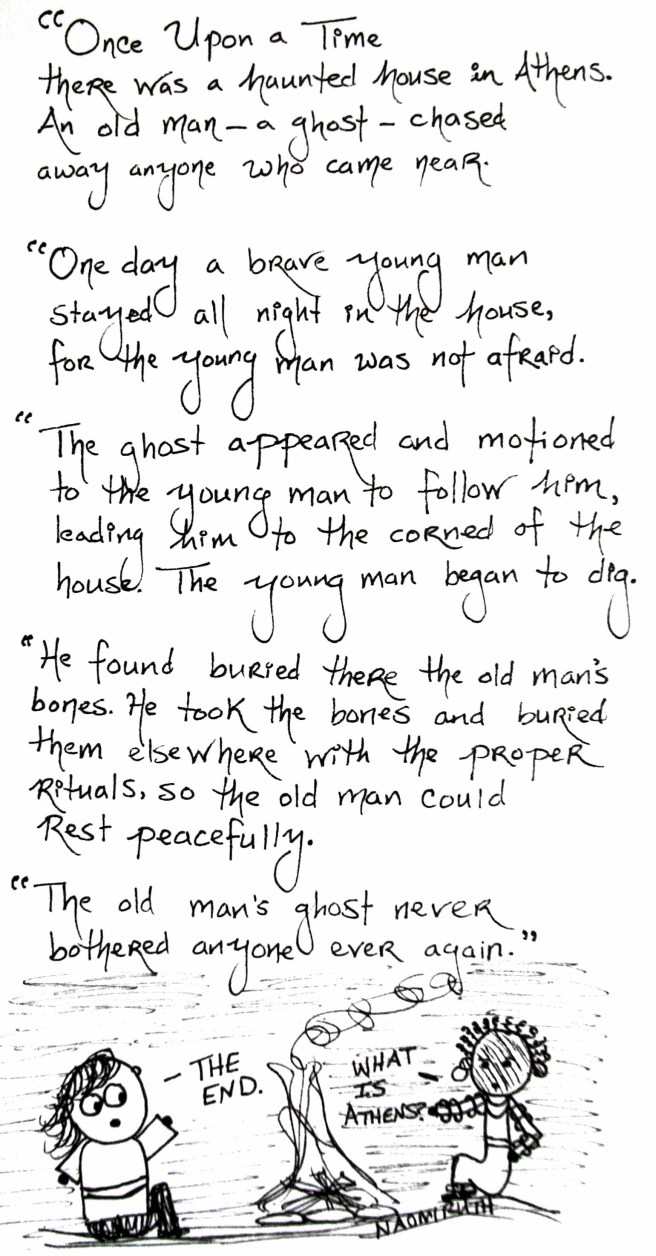 “Once Upon a Time
there was a haunted house in Athens.
An old man – a ghost – chased
away anyone who came near.
“One day a brave young man
stayed all night in the house,
for the young man was not afraid.
“The ghost appeared and motioned
to the young man to follow him,
leading him to the corned of the
house. The young man began to dig.
“He found buried there the old man's
bones. He took the bones and buried
them elsewhere with the proper
Rituals, so the old man could
Rest peacefully.
“The old man's ghost never
bothered anyone ever again.”
– THE
END.
WHAT –
IS
ATHENS?